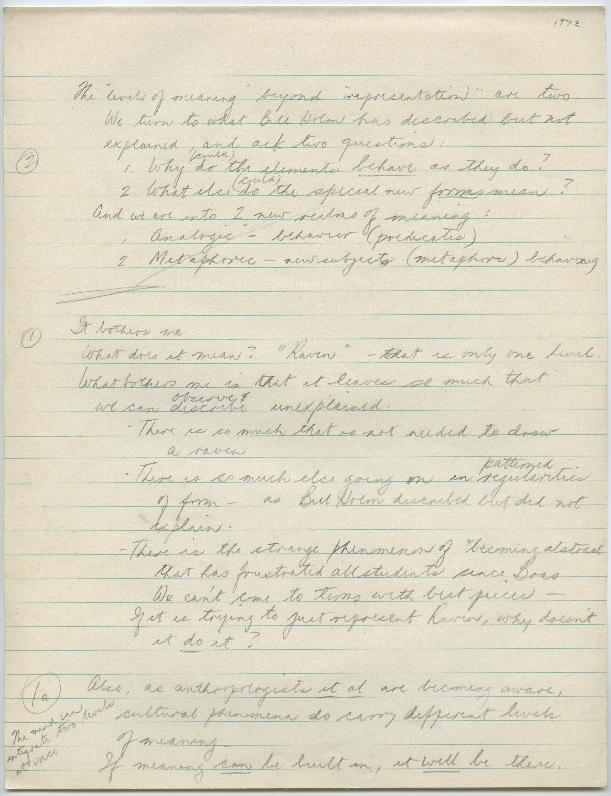 1972
The "levels of meaning" beyond "representation" are two.
We turn to what Bill Holm has described but not
explained, and ask two questions:
(2)
(could)
1. Why do the elements behave as they do?
(could)
2 What else do the special new forms mean?
And we are into 2 new realms of meaning:
1. Analogic - behavior (predicates)
2 Metaphoric - new subjects (metaphors) behaving
(1)
It bothers me
What does it mean? "Raven" - that is only one level.
What bothers me is that it leaves so much that
observe &
we can describe unexplained.
- There is so much that is not needed to draw
a raven
patterned
- There is so much else going on in regularities
of form - as Bill Holm described but did not
explain.
- There is the strange phenomenon of "becoming abstract"
that has frustrated all students since Boas
We can't come to terms with best pieces -
If it is trying to just represent Raven, why doesn't
it do it?
(1a)
Also, as anthropologists et al are becoming aware,
cultural phenomena do carry different levels
of meaning -
The mind can
integrate two levels
at once
If meaning can be built in, it will be there..